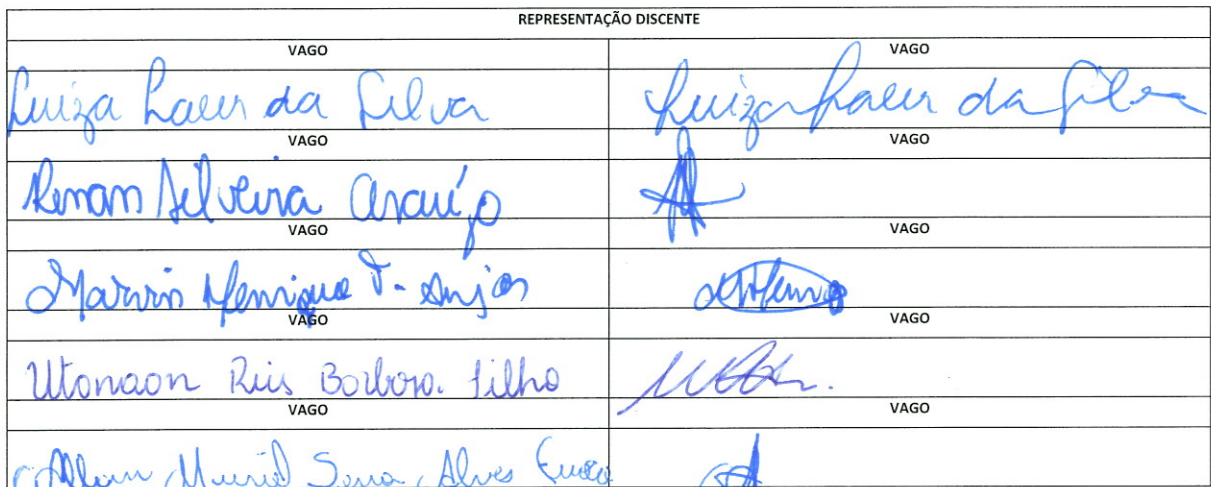 REPRESENTAÇÃO DISCENTE
VAGO VAGO
Luiza Lauer da Silva Luiza Lauer da Silva
VAGO VAGO
Renan Silveira Araújo
VAGO VAGO
Marvin Henrique T. Anjos
VAGO VAGO
Utonaon Reis Barbosa Filho
VAGO VAGO
Muriel Sena Alves